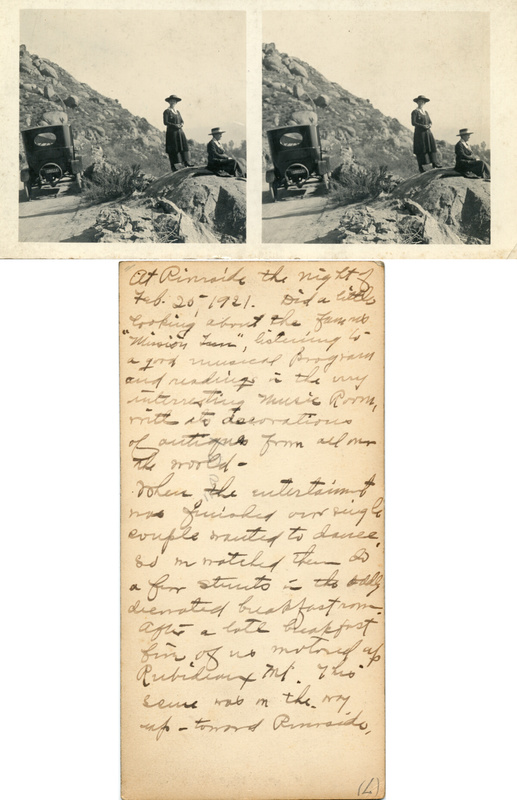 At Riverside the night of
Feb. 25, 1921. Did a little
looking about the famous
"Mission Inn", listening to
a good musical program
and reading in the very
interesting Music Room,
with its decorations
of antiques from all over
the world -
When the entertainment
was finished our single
couple wanted to dance,
so we watched them do
a few stunts in the oddly
decorated breakfast room.
After a late breakfast
five of us motored up
Rubideaux Mt. This
scene was on the way
up - toward Riverside.
(L)